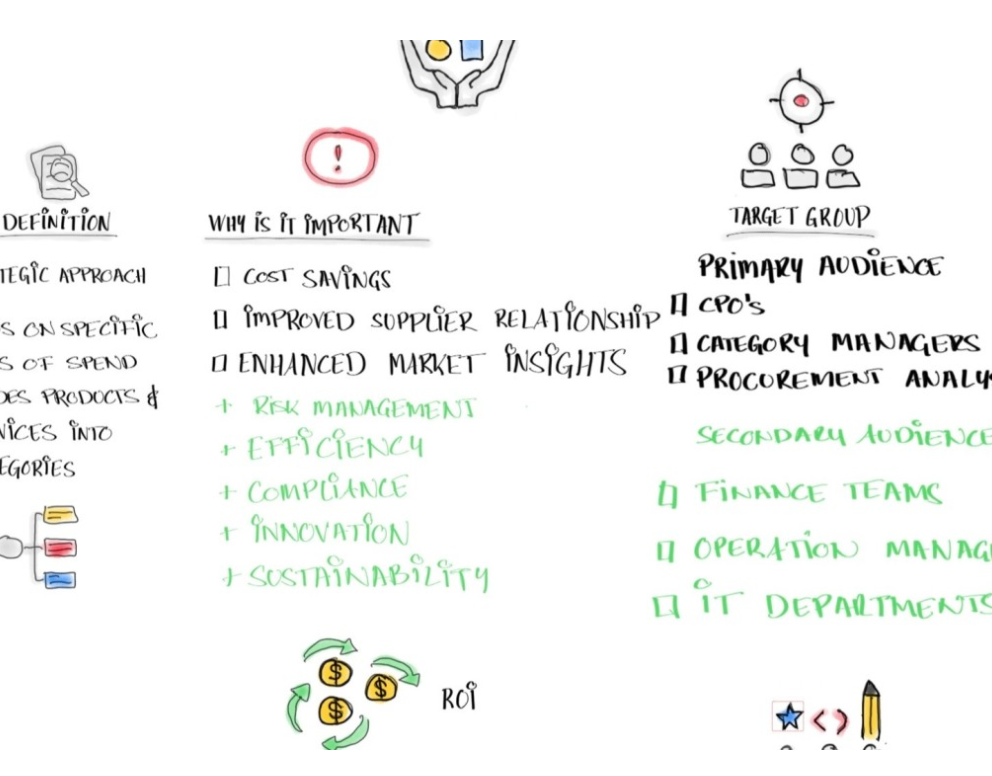 DEFINITION
TEGIC APPROACH
S ON SPECIFIC
S OF SPEND
DES PRODUCTS &
VICES INTO
EGORIES
!
WHY IS IT IMPORTANT
COST SAVINGS
IMPROVED SUPPLIER RELATIONSHIP
ENHANCED MARKET INSIGHTS
+ RISK MANAGEMENT
+ EFFICIENCY
+ COMPLIANCE
+ INNOVATION
+ SUSTAINABILITY
$
$
$
ROI
TARGET GROUP
PRIMARY AUDIENCE
CPO'S
CATEGORY MANAGERS
PROCUREMENT ANALY
SECONDARY AUDIENCE
FINANCE TEAMS
OPERATION MANAG
IT DEPARTMENTS
< >